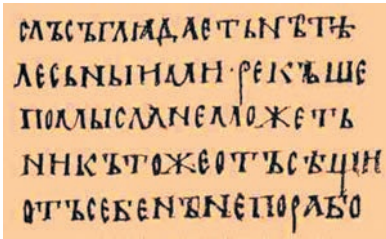 слъсъглѧдаетьнѣтѣ
лесьныимии·рекъше
помыслмнеможеть
никътожеотъсѣщи
отъсебенънепорабо